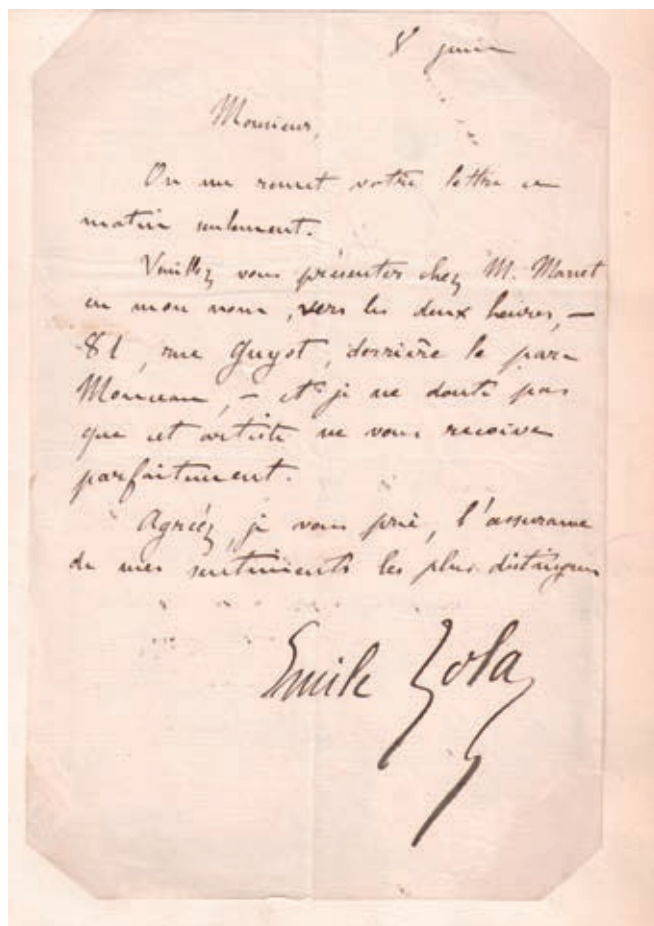 8 juin
Monsieur,
On me remet votre lettre ce
matin seulement.
Veuillez vous présenter chez M. Manet
en mon nom, vers les deux heures, –
81, rue Guyot, derrière le parc
Monceau, – et je ne doute pas
que cet artiste ne vous reçoive
parfaitement.
Agréez, je vous prie, l'assurance
de mes sentiments les plus distingués
Emile Zola